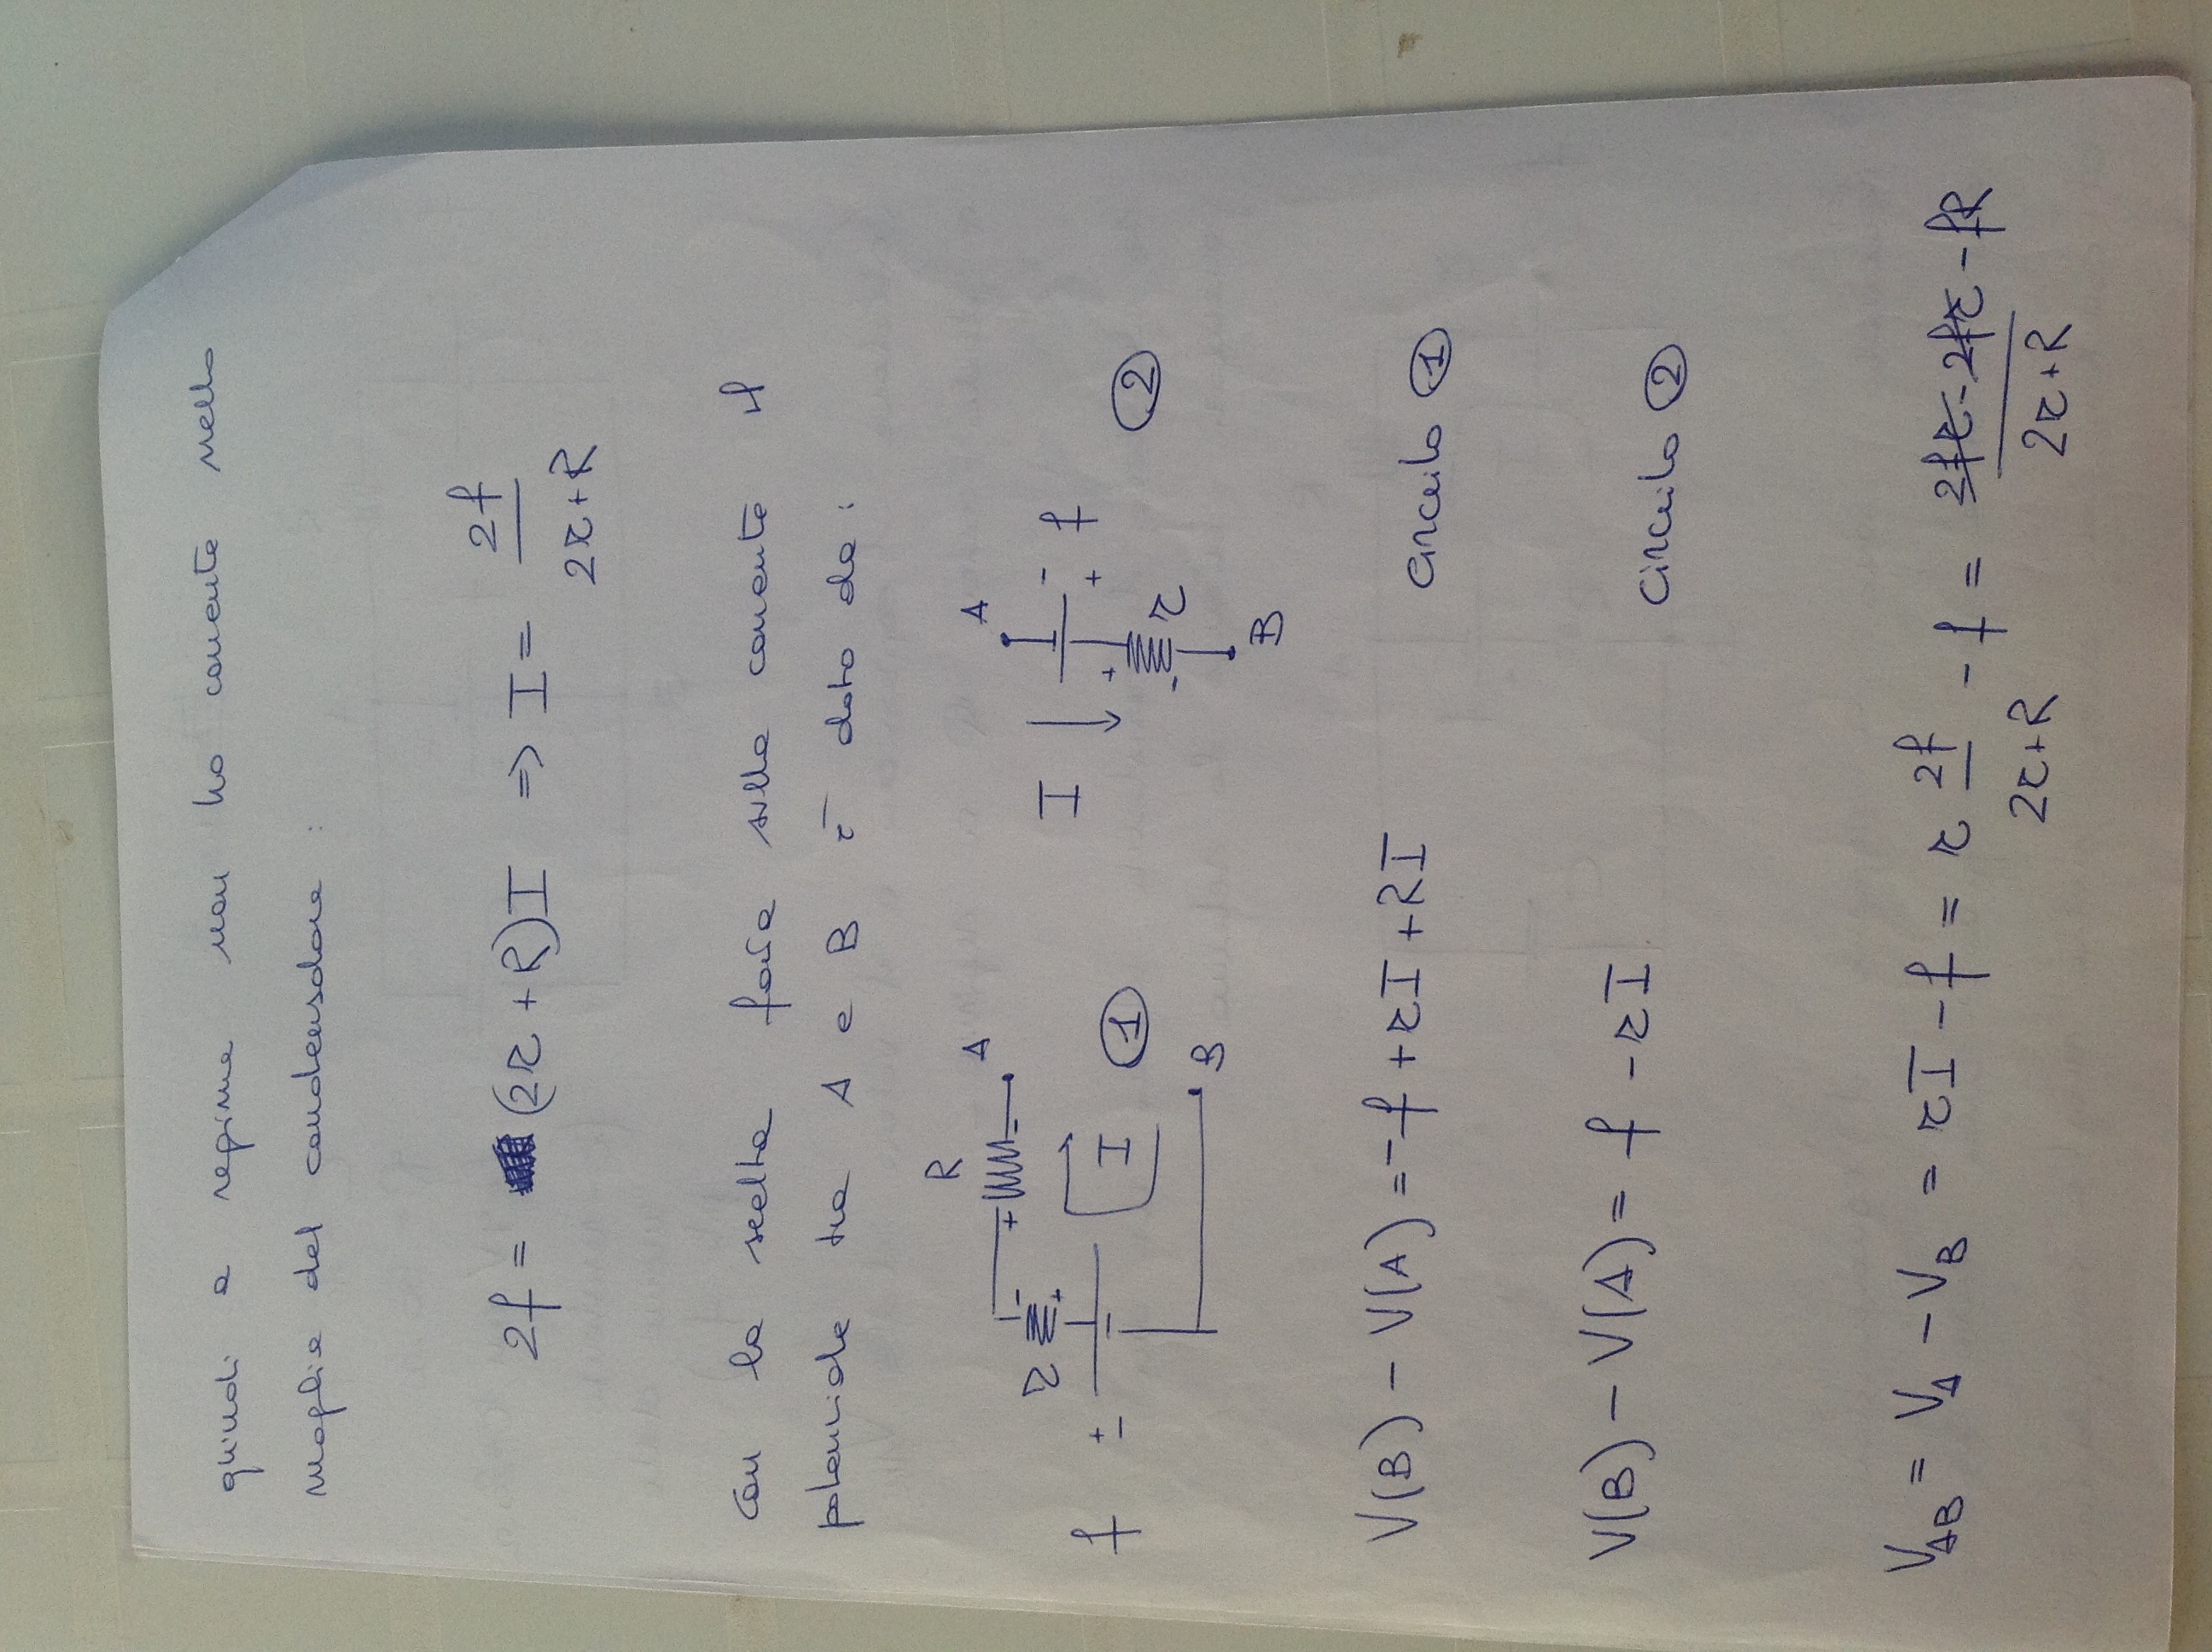 quindi a regime non ho corrente nella
maglia del condensatore :
2f = (2r + R)I => I = 2f / 2r+R
con la scelta fatta sulla corrente il
potenziale tra A e B è dato da :
R
A
+ -
r - +
f + - I 1
B
A
I - f
+
+
2
- r
B
V(B) - V(A) = -f + rI + RI circuito 1
V(B) - V(A) = f - rI circuito 2
V_AB = V_A - V_B = rI - f = r 2f / 2r+R - f = 2fr - 2fr - fR / 2r+R